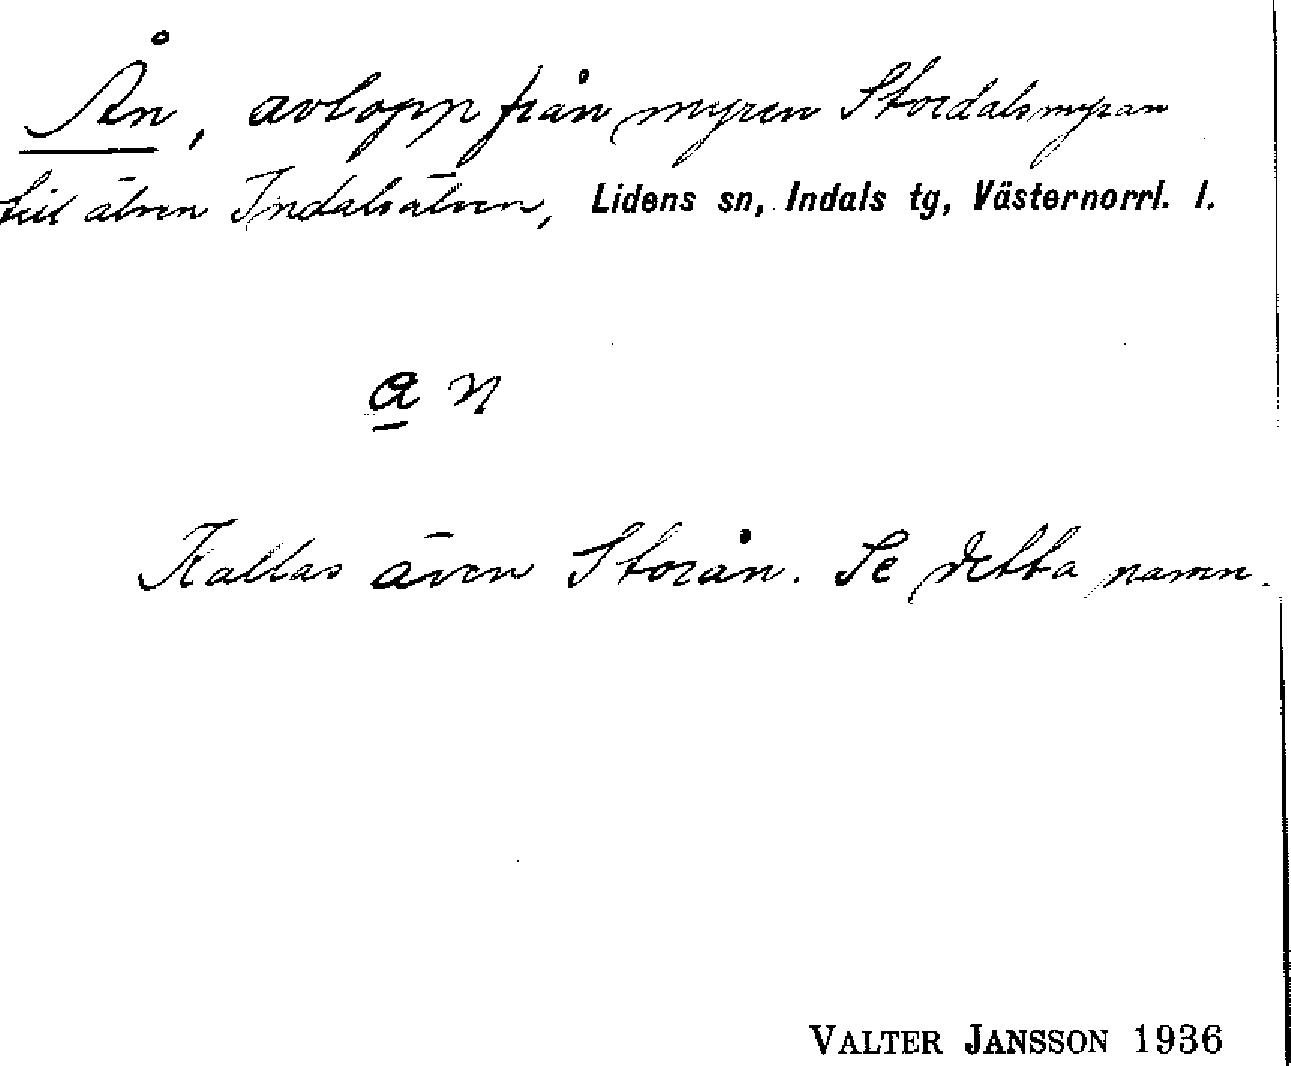 Ån, avlopp från myren Stordalsmyran
till älven Indalsälven, Lidens sn, Indals tg, Västernorrl. l.
a n
Kallas även Storån. Se detta namn.
VALTER JANSSON 1936